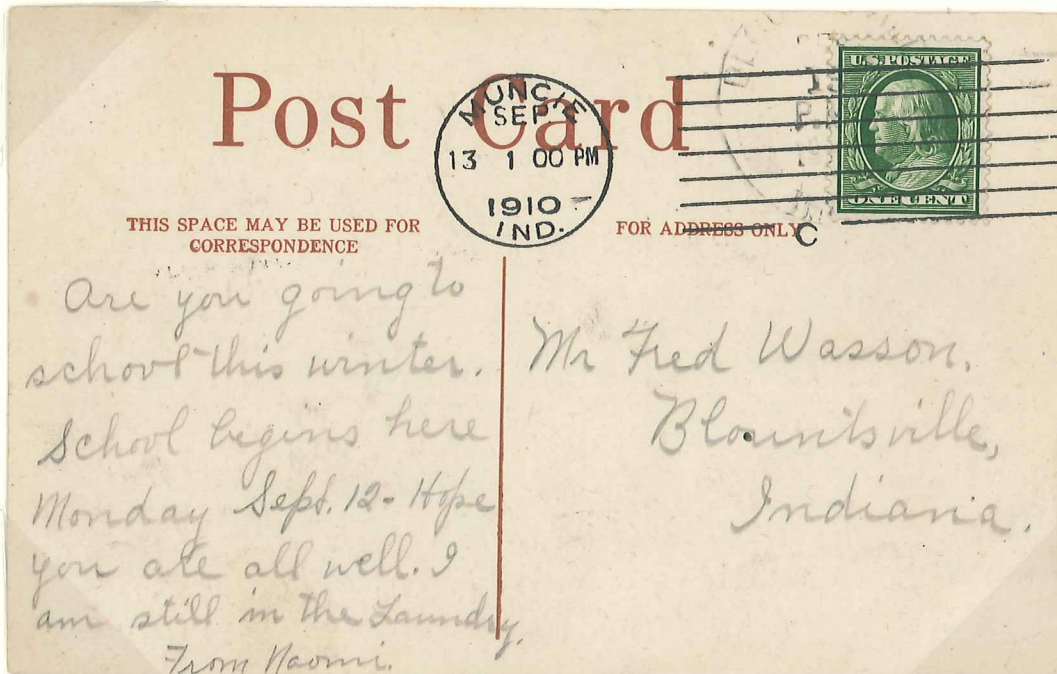 Post Card
MUNCIE
SEP
13 1 00 PM
1910
IND.
U.S. POSTAGE
ONE CENT
C
THIS SPACE MAY BE USED FOR
CORRESPONDENCE
FOR ADDRESS ONLY
Are you going to
school this winter.
School begins here
Monday Sept. 12 - Hope
you are all well. I
am still in the Laundry.
From Naomi.
Mr Fred Wasson,
Blountsville,
Indiana.